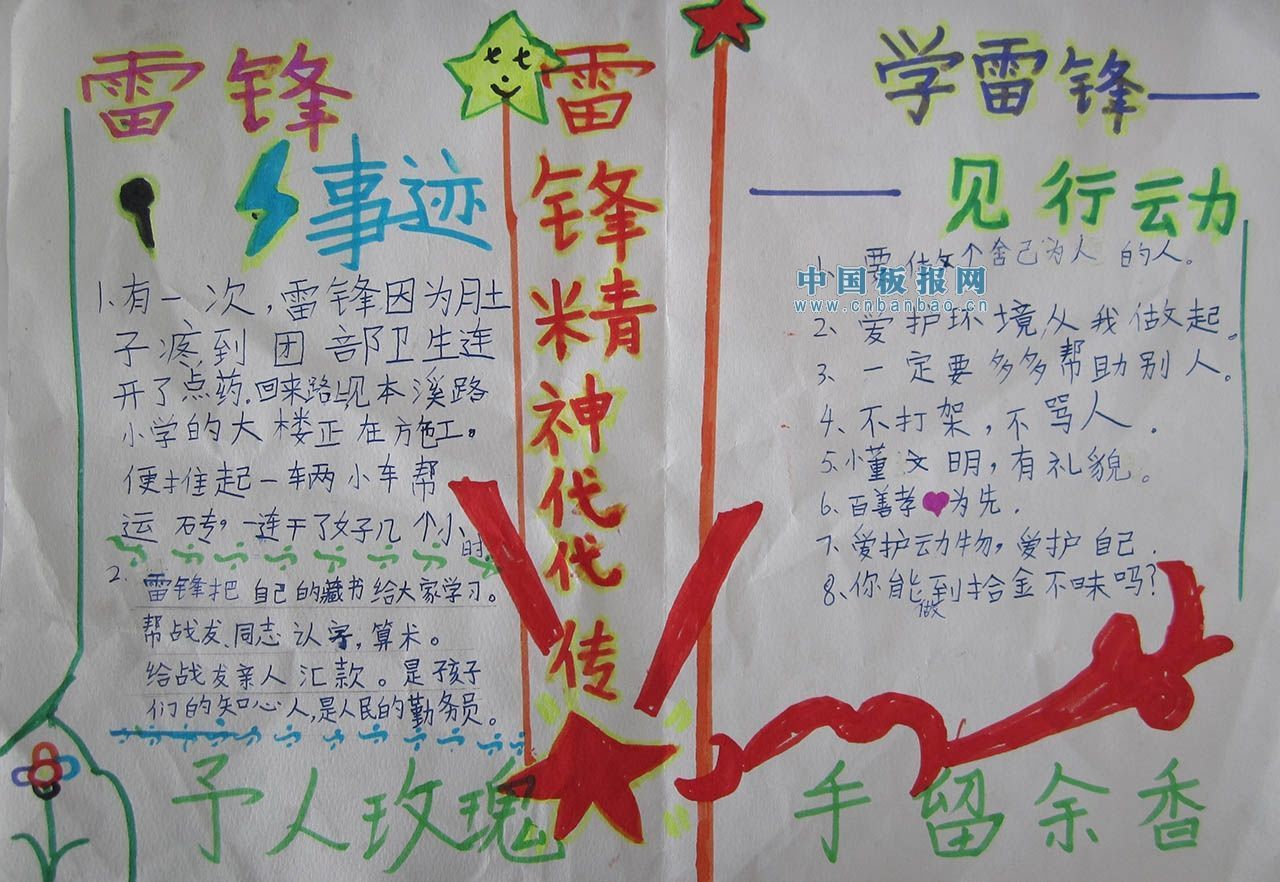 雷锋
事迹
1、有一次,雷锋因为肚
子疼,到团部卫生连
开了点药,回来路上,见本溪路
小学的大楼正在施工。
便推起一车两小车帮
运砖,一连干了好几个小
时
2、雷锋把自己的藏书给大家学习。
帮战友、同志认字,算术。
给战友亲人汇款。是孩子
们的知心人,是人民的勤务员。
雷锋精神代代传
学雷锋——
——见行动
1、要做个舍己为人的人。
中国板报网
www.cnbanbao.cn
2、爱护环境,从我做起。
3、一定要多多帮助别人。
4、不打架,不骂人.
5、小董文明,有礼貌。
6、百善孝为先.
7、爱护动物,爱护自己.
8、你能做到拾金不昧吗?
予人玫瑰
手留余香